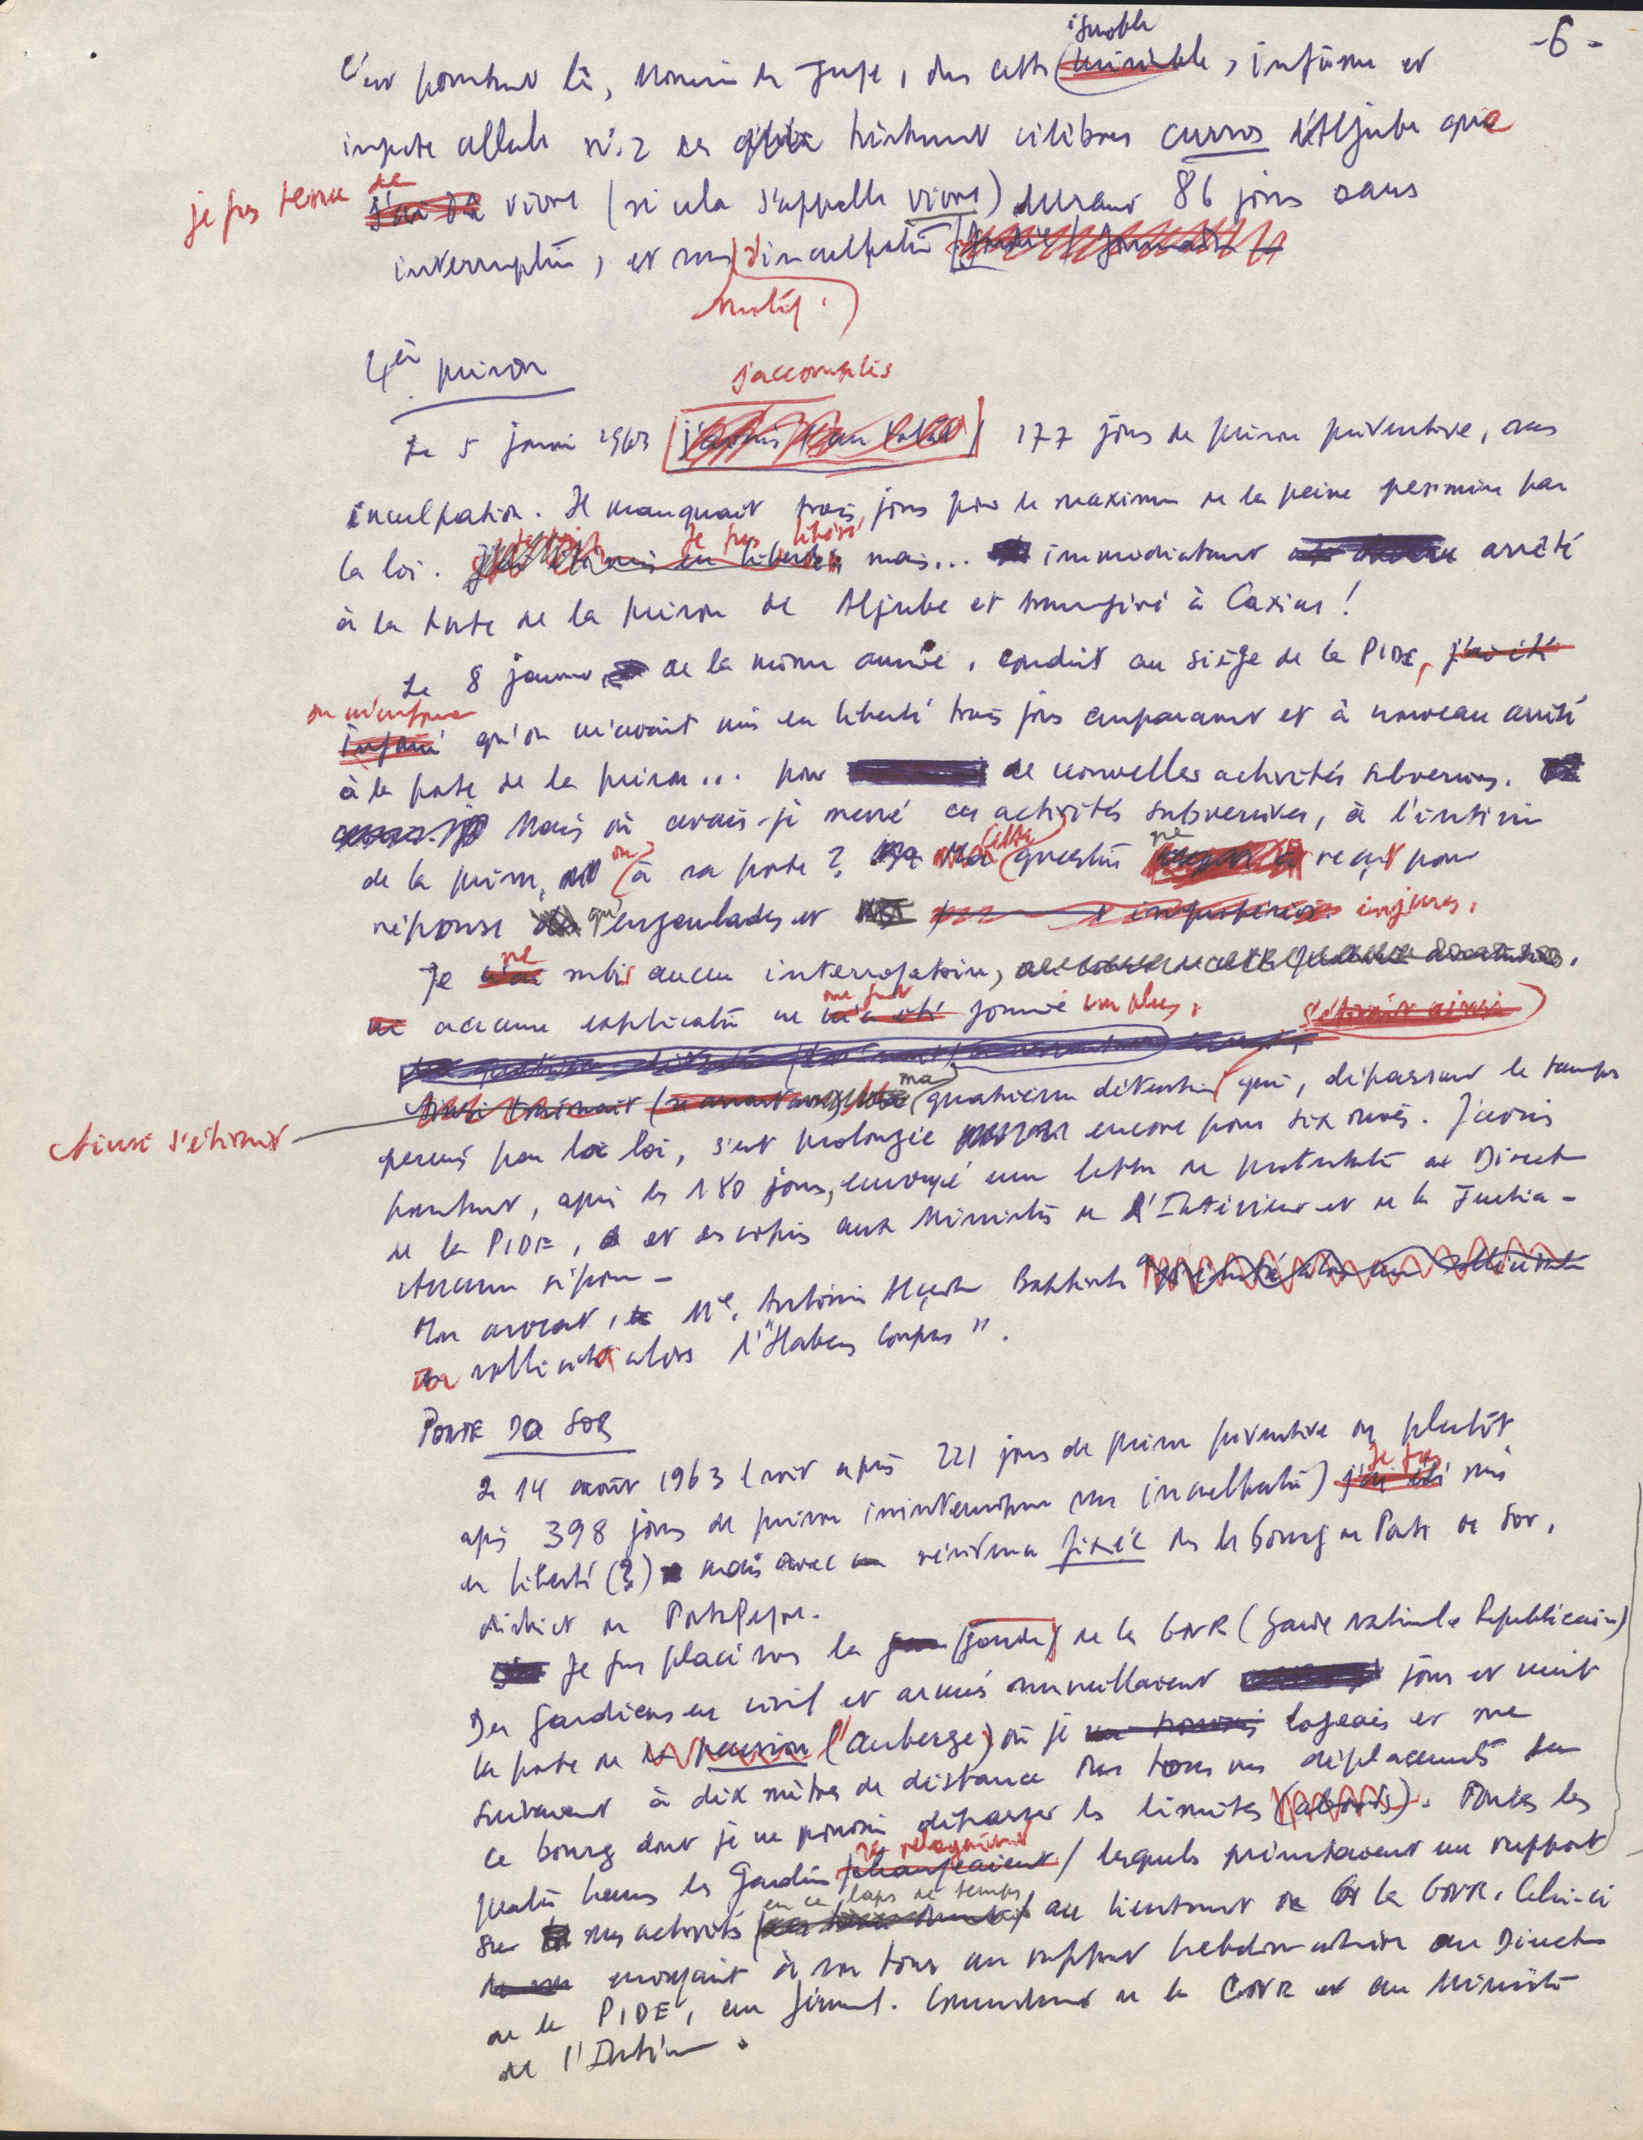 -6-
ignoble
C'est pourtant là, Monsieur le Juge, dans cette, infâme et
infecte cellule nº 2 des tristement célèbres curros d'Aljube que
je fus tenu de vivre (si cela s'appelle vivre) durant 86 jours sans
interruption, et sans d'inculpation
motif.
4è prison
j'accomplis
Le 5 janvier 1963 177 jours de prison préventive, sans
inculpation. Il manquait trois jours pour le maximum de la peine permise par
Je fus libéré
la loi. mais... immédiatement arrêté
à la porte de la prison de Aljube et transféré à Caxias !
Le 8 janvier de la même année, conduit au siège de la PIDE, j'ai été
on m'informe
informé qu'on m'avait mis en liberté trois jours auparavant et à nouveau arrêté
à la porte de la prison... pour de nouvelles activités subversives.
Mais où avais-je mené ces activités subversives, à l'intérieur
de la prison, ou à sa porte ? cette question ne reçut pour
réponse qu'engueulades et injures.
Je ne subis aucun interrogatoire,
aucune explication ne me fut donnée non plus.
s'étirait ainsi
Ainsi s'étirait
ma quatrième détention qui, dépassant le temps
permis par la loi, s'est prolongée encore pour six mois. J'avais
pourtant, après les 180 jours, envoyé une lettre de protestation au Directeur
de la PIDE, et des copies aux Ministères de l'Intérieur et de la Justice -
Aucune réponse -
Mon avocat, Me. António Baptista
sollicita alors l'"Habeas Corpus".
PONTE DO SOR
Le 14 août 1963 (soit après 221 jours de prison préventive ou plutôt
Je fus
après 398 jours de prison ininterrompue sans inculpation) j'ai été mis
en liberté (?) mais avec résidence fixée dans le bourg de Ponte de Sor,
district de Portalegre.
Je fus placé sous la garde de la GNR (Garde Nationale Républicaine)
Des gardiens en civil et armés surveillaient jour et nuit
la porte de la pension l'auberge où je logeais et me
suivaient à dix mètres de distance dans tous mes déplacements dans
ce bourg dont je ne pouvais dépasser les limites (abords). Toutes les
se relayaient
quatre heures les gardiens changeaient / lesquels présentaient un rapport
en ce laps de temps
sur mes activités au lieutenant de la GNR. Celui-ci
envoyait à son tour un rapport hebdomadaire au Directeur
de la PIDE, au général Commandant de la GNR et au Ministère
de l'Intérieur.